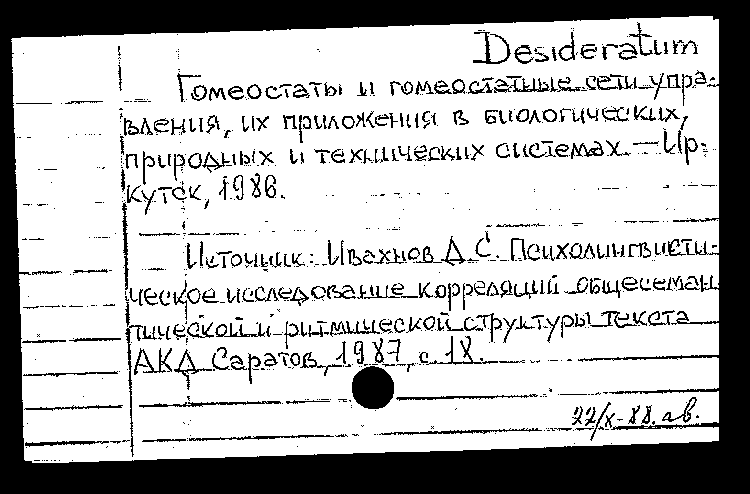 Desideratum
Гомеостаты и гомеостатные сети упра-
вления, их приложения в биологических,
природных и технических системах. — Ир-
кутск, 1986.
Источник: Ивахнов Д. С. Психолингвисти-
ческое исследование корреляций общесеман
тической и ритмической структуры текста
АКД Саратов, 1987, с. 18.
22/X-88. ав.